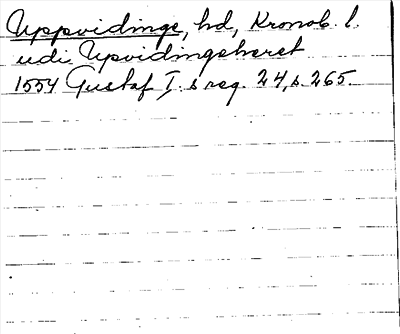 Uppvidinge, hd, Kronob. l.
udi Upvidingsheret
1554 Gustaf I. s reg. 24, s. 265.